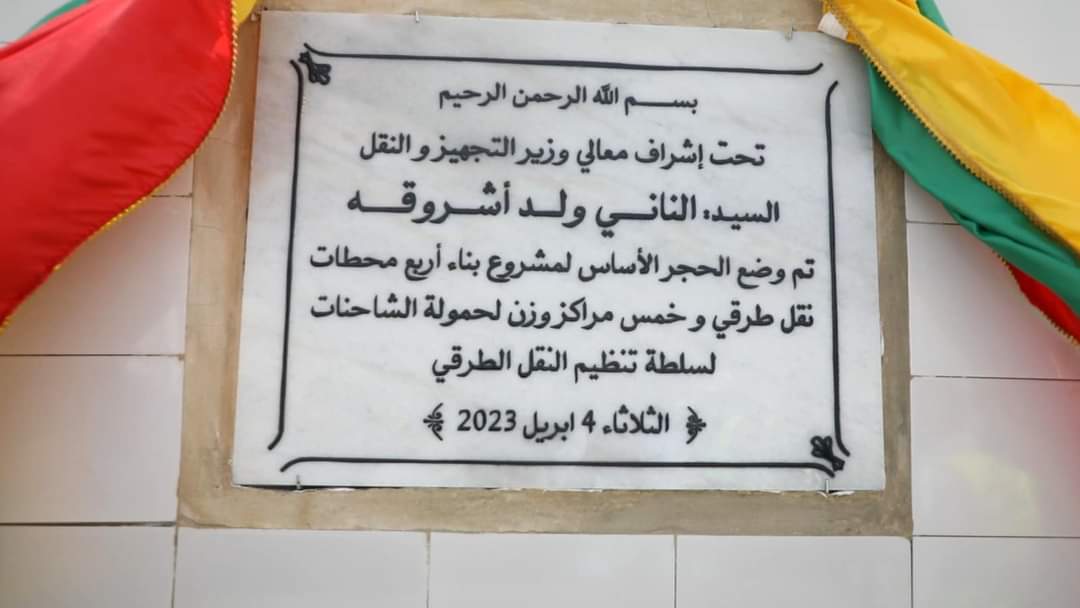 بســـم الله الرحمن الرحيم
تحت إشراف معالي وزير التجهيز و النقل
السيد: النانــي ولــد أشــروقــه
تم وضع الحجر الأساس لمشروع بناء أربع محطات
نقل طرقي و خمس مراكز وزن لحمولة الشاحنات
لسلطة تنظيم النقل الطرقي
الثلاثاء 4 ابريل 2023